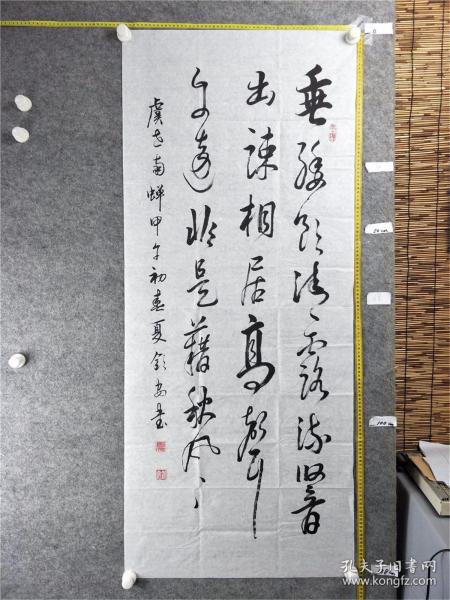 垂緌飲清露流響
出疎桐居高聲
自遠非是藉秋風
虞世南蟬甲午初春夏書
0
50cm
100cm
孔夫子旧书网
www.kongfz.com